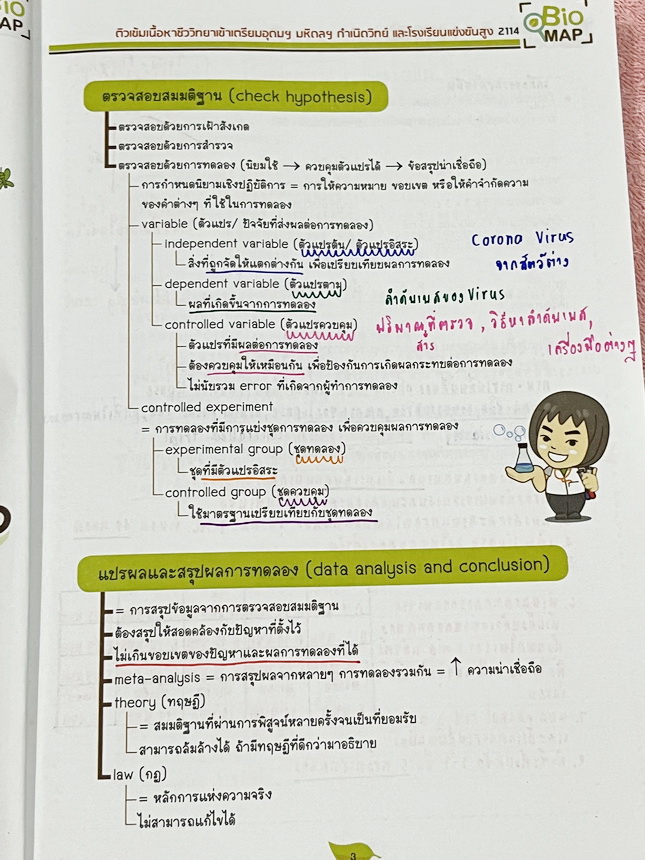 ติวเข้มเนื้อหาชีววิทยาเข้าเตรียมอุดมฯ มหิดลฯ กำเนิดวิทย์ และโรงเรียนแข่งขันสูง 2114
Bio
MAP
ตรวจสอบสมมติฐาน (check hypothesis)
ตรวจสอบด้วยการเฝ้าสังเกต
ตรวจสอบด้วยการสำรวจ
ตรวจสอบด้วยการทดลอง (นิยมใช้ → ควบคุมตัวแปรได้ → ข้อสรุปน่าเชื่อถือ)
การกำหนดนิยามเชิงปฏิบัติการ = การให้ความหมาย ขอบเขต หรือให้คำจำกัดความ
ของคำต่างๆ ที่ใช้ในการทดลอง
variable (ตัวแปร/ ปัจจัยที่ส่งผลต่อการทดลอง)
independent variable (ตัวแปรต้น/ ตัวแปรอิสระ) Corona Virus
สิ่งที่ถูกจัดให้แตกต่างกัน เพื่อเปรียบเทียบผลการทดลอง จากสัตว์ต่าง
dependent variable (ตัวแปรตาม) ลำดับเบสของ Virus
ผลที่เกิดขึ้นจากการทดลอง
controlled variable (ตัวแปรควบคุม) ปริมาณที่ตรวจ, วิธีหาลำดับเบส,
ตัวแปรที่มีผลต่อการทดลอง สาร เครื่องมือต่างๆ
ต้องควบคุมให้เหมือนกัน เพื่อป้องกันการเกิดผลกระทบต่อการทดลอง
ไม่นับรวม error ที่เกิดจากผู้ทำการทดลอง
controlled experiment
= การทดลองที่มีการแบ่งชุดการทดลอง เพื่อควบคุมผลการทดลอง
experimental group (ชุดทดลอง)
ชุดที่มีตัวแปรอิสระ
controlled group (ชุดควบคุม)
ใช้มาตรฐานเปรียบเทียบกับชุดทดลอง
แปรผลและสรุปผลการทดลอง (data analysis and conclusion)
= การสรุปข้อมูลจากการตรวจสอบสมมติฐาน
ต้องสรุปให้สอดคล้องกับปัญหาที่ตั้งไว้
ไม่เกินขอบเขตของปัญหาและผลการทดลองที่ได้
meta-analysis = การสรุปผลจากหลายๆ การทดลองรวมกัน = ↑ ความน่าเชื่อถือ
theory (ทฤษฎี)
= สมมติฐานที่ผ่านการพิสูจน์หลายครั้งจนเป็นที่ยอมรับ
สามารถล้มล้างได้ ถ้ามีทฤษฎีที่ดีกว่ามาอธิบาย
law (กฎ)
= หลักการแห่งความจริง
ไม่สามารถแก้ไขได้
3